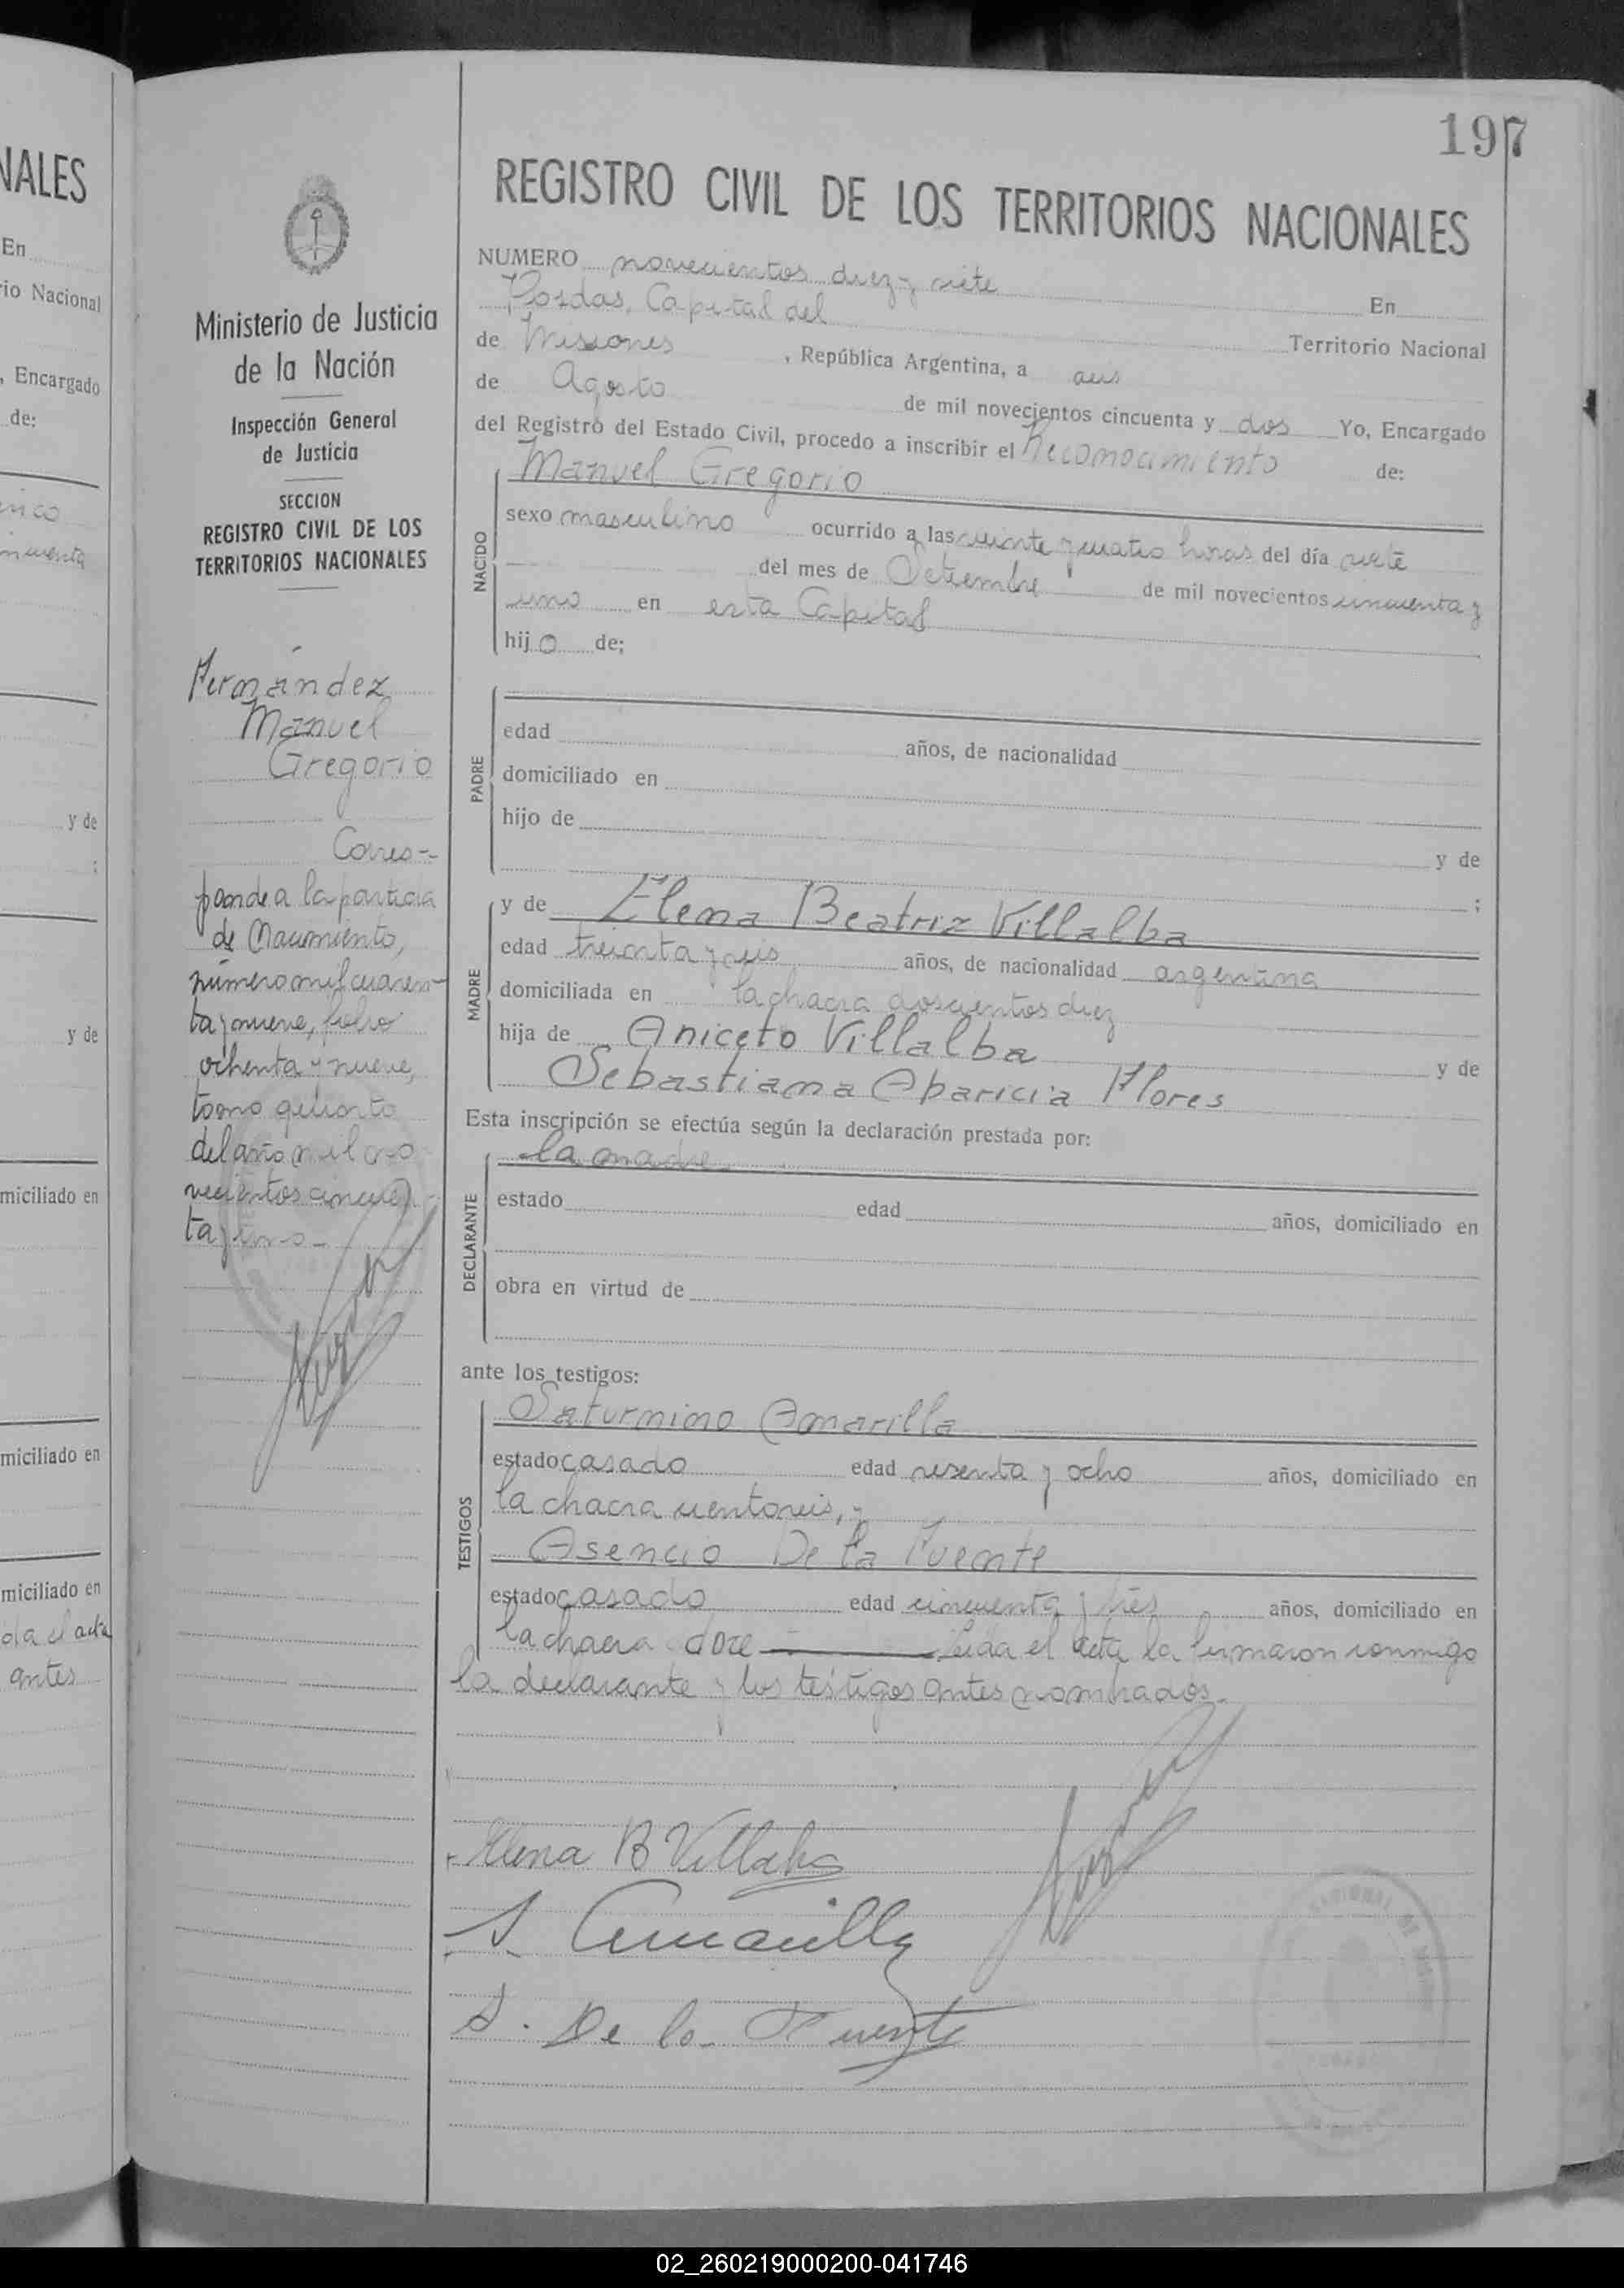 NALES
En
rio Nacional
, Encargado
de:
y de
;
y de
miciliado en
miciliado en
miciliado en
da el acta
antes
197
Ministerio de Justicia
de la Nación
Inspección General
de Justicia
SECCION
REGISTRO CIVIL DE LOS
TERRITORIOS NACIONALES
Fernández
Manuel
Gregorio
Corres-
ponde a la partida
de Nacimiento,
número mil cuaren-
ta y nueve, folio
ochenta y nueve,
tomo quinto
del año mil no
vecientos cincuen
ta y uno-
REGISTRO CIVIL DE LOS TERRITORIOS NACIONALES
NUMERO novecientos diez y siete En
Posdas, Capital del Territorio Nacional
de Misiones , República Argentina, a seis
de Agosto de mil novecientos cincuenta y dos Yo, Encargado
del Registro del Estado Civil, procedo a inscribir el Reconocimiento de:
NACIDO
Manuel Gregorio
sexo masculino ocurrido a las veinte y cuatro horas del día siete
del mes de Setiembre de mil novecientos cincuenta y
uno en esta Capital
hijo de;
PADRE
edad años, de nacionalidad
domiciliado en
hijo de
y de
;
MADRE
y de Elena Beatriz Villalba
edad treinta y seis años, de nacionalidad argentina
domiciliada en la chacra doscientos diez
hija de Aniceto Villalba y de
Sebastiana Aparicia Flores
Esta inscripción se efectúa según la declaración prestada por:
DECLARANTE
la madre
estado edad años, domiciliado en
obra en virtud de
ante los testigos:
TESTIGOS
Saturnino Amarilla
estado casado edad sesenta y ocho años, domiciliado en
la chacra ciento seis, y
Asencio De la Fuente
estado casado edad cincuenta y tres años, domiciliado en
la chacra doce Leida el acta la firmaron conmigo
la declarante y los testigos antes nombrados.
Elena B Villalba
S. Amarilla
A. De la Fuente
02_260219000200-041746